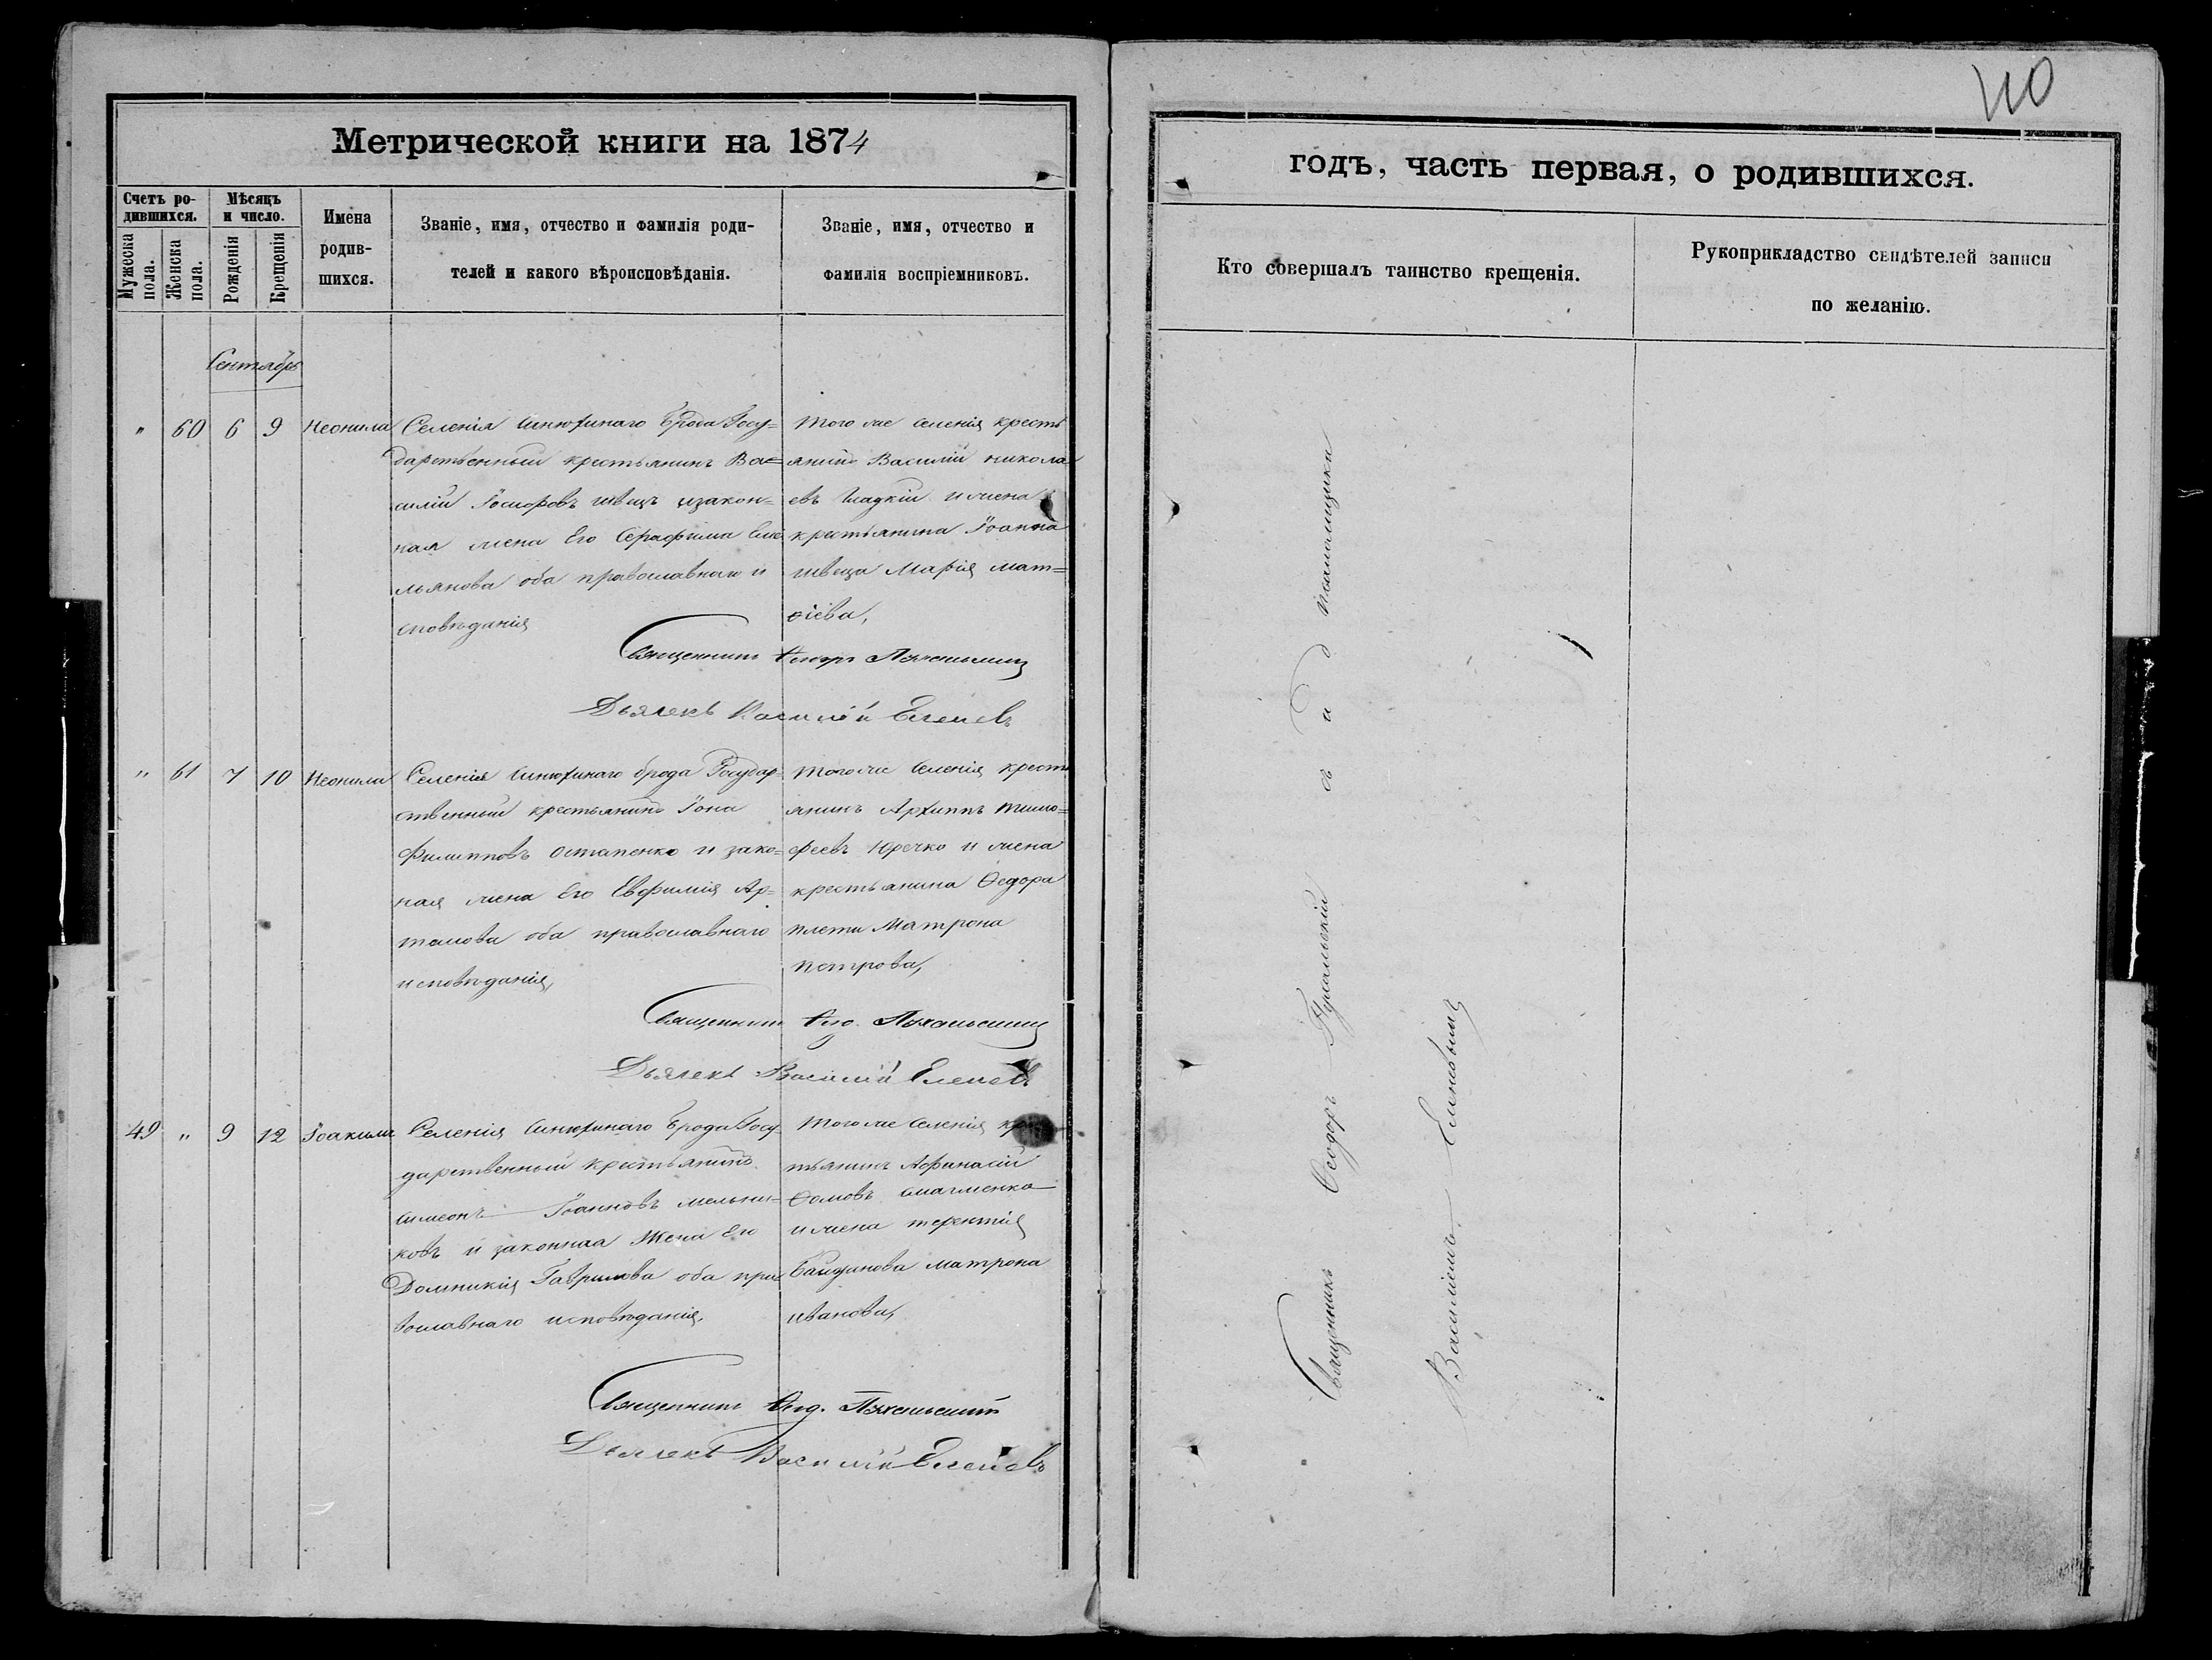 Метрической книги на 1874
Счетъ родившихся.
Мужеска пола.
Женска пола.
Мѣсяцъ и число.
Рожденія
Крещенія
Имена родившихся.
Званіе, имя, отчество и фамилія роди-
телей и какого вѣроисповѣданія.
Званіе, имя, отчество и
фамилія воспріемниковъ.
Сентябрь
" 60 6 9 Неонила
Селенія Синюхинаго Брода Госу=
дарственный крестьянинъ Ва=
силій Іосифовъ швецъ и закон=
ная жена Его Серафима Еме
льянова оба православнаго и
сповѣданія
того же селенія кресть
янинъ Василій никола
евъ Гладкій и жена
крестьянина Іоанна
швеца Марія мат=
ѳіева,
Священникъ
Дьячекъ Василій
" 61 7 10 Неонила
Селенія Синюхинаго брода Государ-
ственный крестьянинъ Іона
Филипповъ Остапенко и зако=
ная жена Его Евфимія Ар=
темова оба православнаго
исповѣданія,
того же селенія кресть
янинъ Архиппъ тимо=
феевъ Юречко и жена
крестьянина Ѳедора
плети Матрона
петрова,
Священникъ
Дьячекъ Василій
49 " 9 12 Іоакимъ
Селенія Синюхинаго Брода Госу-
дарственный крестьянинъ
симеонъ Іоанновъ мельни=
ковъ и законная Жена Его
Домникія Гаврилова оба пра
вославнаго исповѣданія,
того же селенія
тьянинъ Афанасій
Ѳомовъ
и жена терентія
Матрона
иванова,
Священникъ
Дьячекъ Василій
110
годъ, часть первая, о родившихся.
Кто совершалъ таинство крещенія.
Рукоприкладство свидѣтелей записи
по желанію.
Священникъ Ѳеодоръ съ псаломщикомъ
Василіемъ